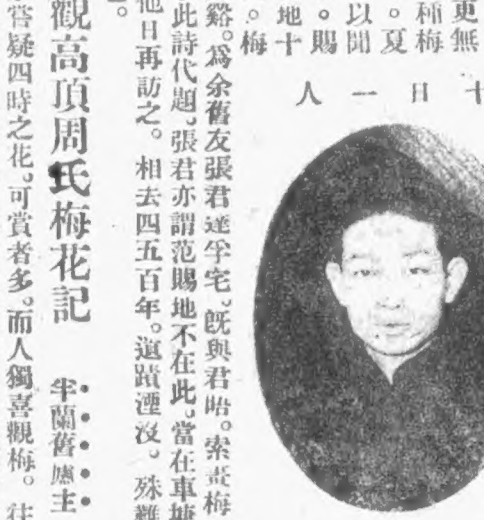 更無
種梅
。夏
以聞
。賜
地十
。梅
十日一人
谿。爲余舊友張君達孚宅。旣與君晤。索畫梅
此詩代題。張君亦謂范賜地不在此。當在車塘
他日再訪之。相去四五百年。遺蹟湮沒。殊難
。
觀高頂周氏梅花記 半蘭舊廬主
答疑四時之花。可賞者多。而人獨喜觀梅。往